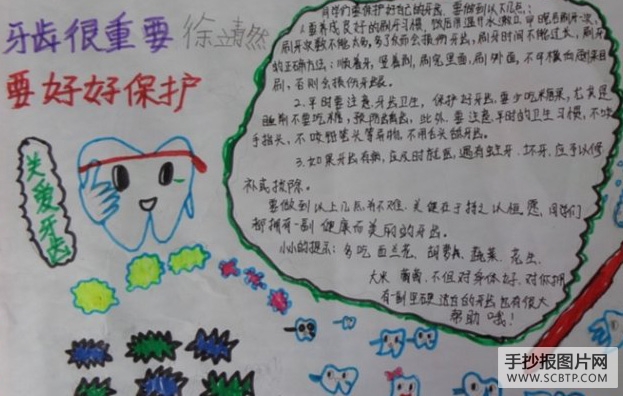 牙齿很重要
徐靖然
要好好保护
关爱牙齿
同学们要保护好自己的牙齿，要做到以下几点：
1.要养成良好的刷牙习惯，饭后用温水漱口，早晚各刷牙一次，
刷牙次数不能太多，多了反而会损伤牙齿，刷牙时间不能过长，刷牙
的正确方法：顺着牙，竖着刷，刷完里面，刷外面，不可横向刷来回
刷，否则会损伤牙龈。
2.平时要注意牙齿卫生，保护好牙齿，要少吃糖果，尤其是
睡前不要吃糖，预防龋齿，此外，要注意平时的卫生习惯，不咬
手指头，不咬铅笔头等异物，不用舌头舔牙齿。
3.如果牙齿有病，应及时医治，遇有蛀牙、坏牙，应予以修
补或拔除。
要做到以上几点并不难，关键在于持之以恒，愿同学们
都拥有一副健康而美丽的牙齿。
小小的提示：多吃西兰花、胡萝卜、蔬菜、花生、
大米、葡萄，不但对身体好，对你拥
有一副坚硬洁白的牙齿也有很大
帮助哦！
手抄报图片网
WWW.SCBTP.COM